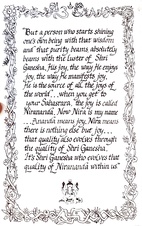 "But a person who starts shining
one's own being with that wisdom
and that purity beams absolutely
beams with the luster of Shri
Ganesha. His joy, the way He enjoys
joy, the way He manifests joy,
He is the source of all the joys of
the world... when you get to
your Sahasrara, the joy is called
Nirananda. Now Nira is my name
...Ananda means joy, Nira means
there is nothing else but joy...
that quality also evolves through
the quality of Shri Ganesha.
It's Shri Ganesha who evolves that
quality of Nirananda within us"